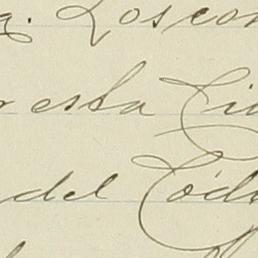 a. Loscon
r esta Ciu
del Códi